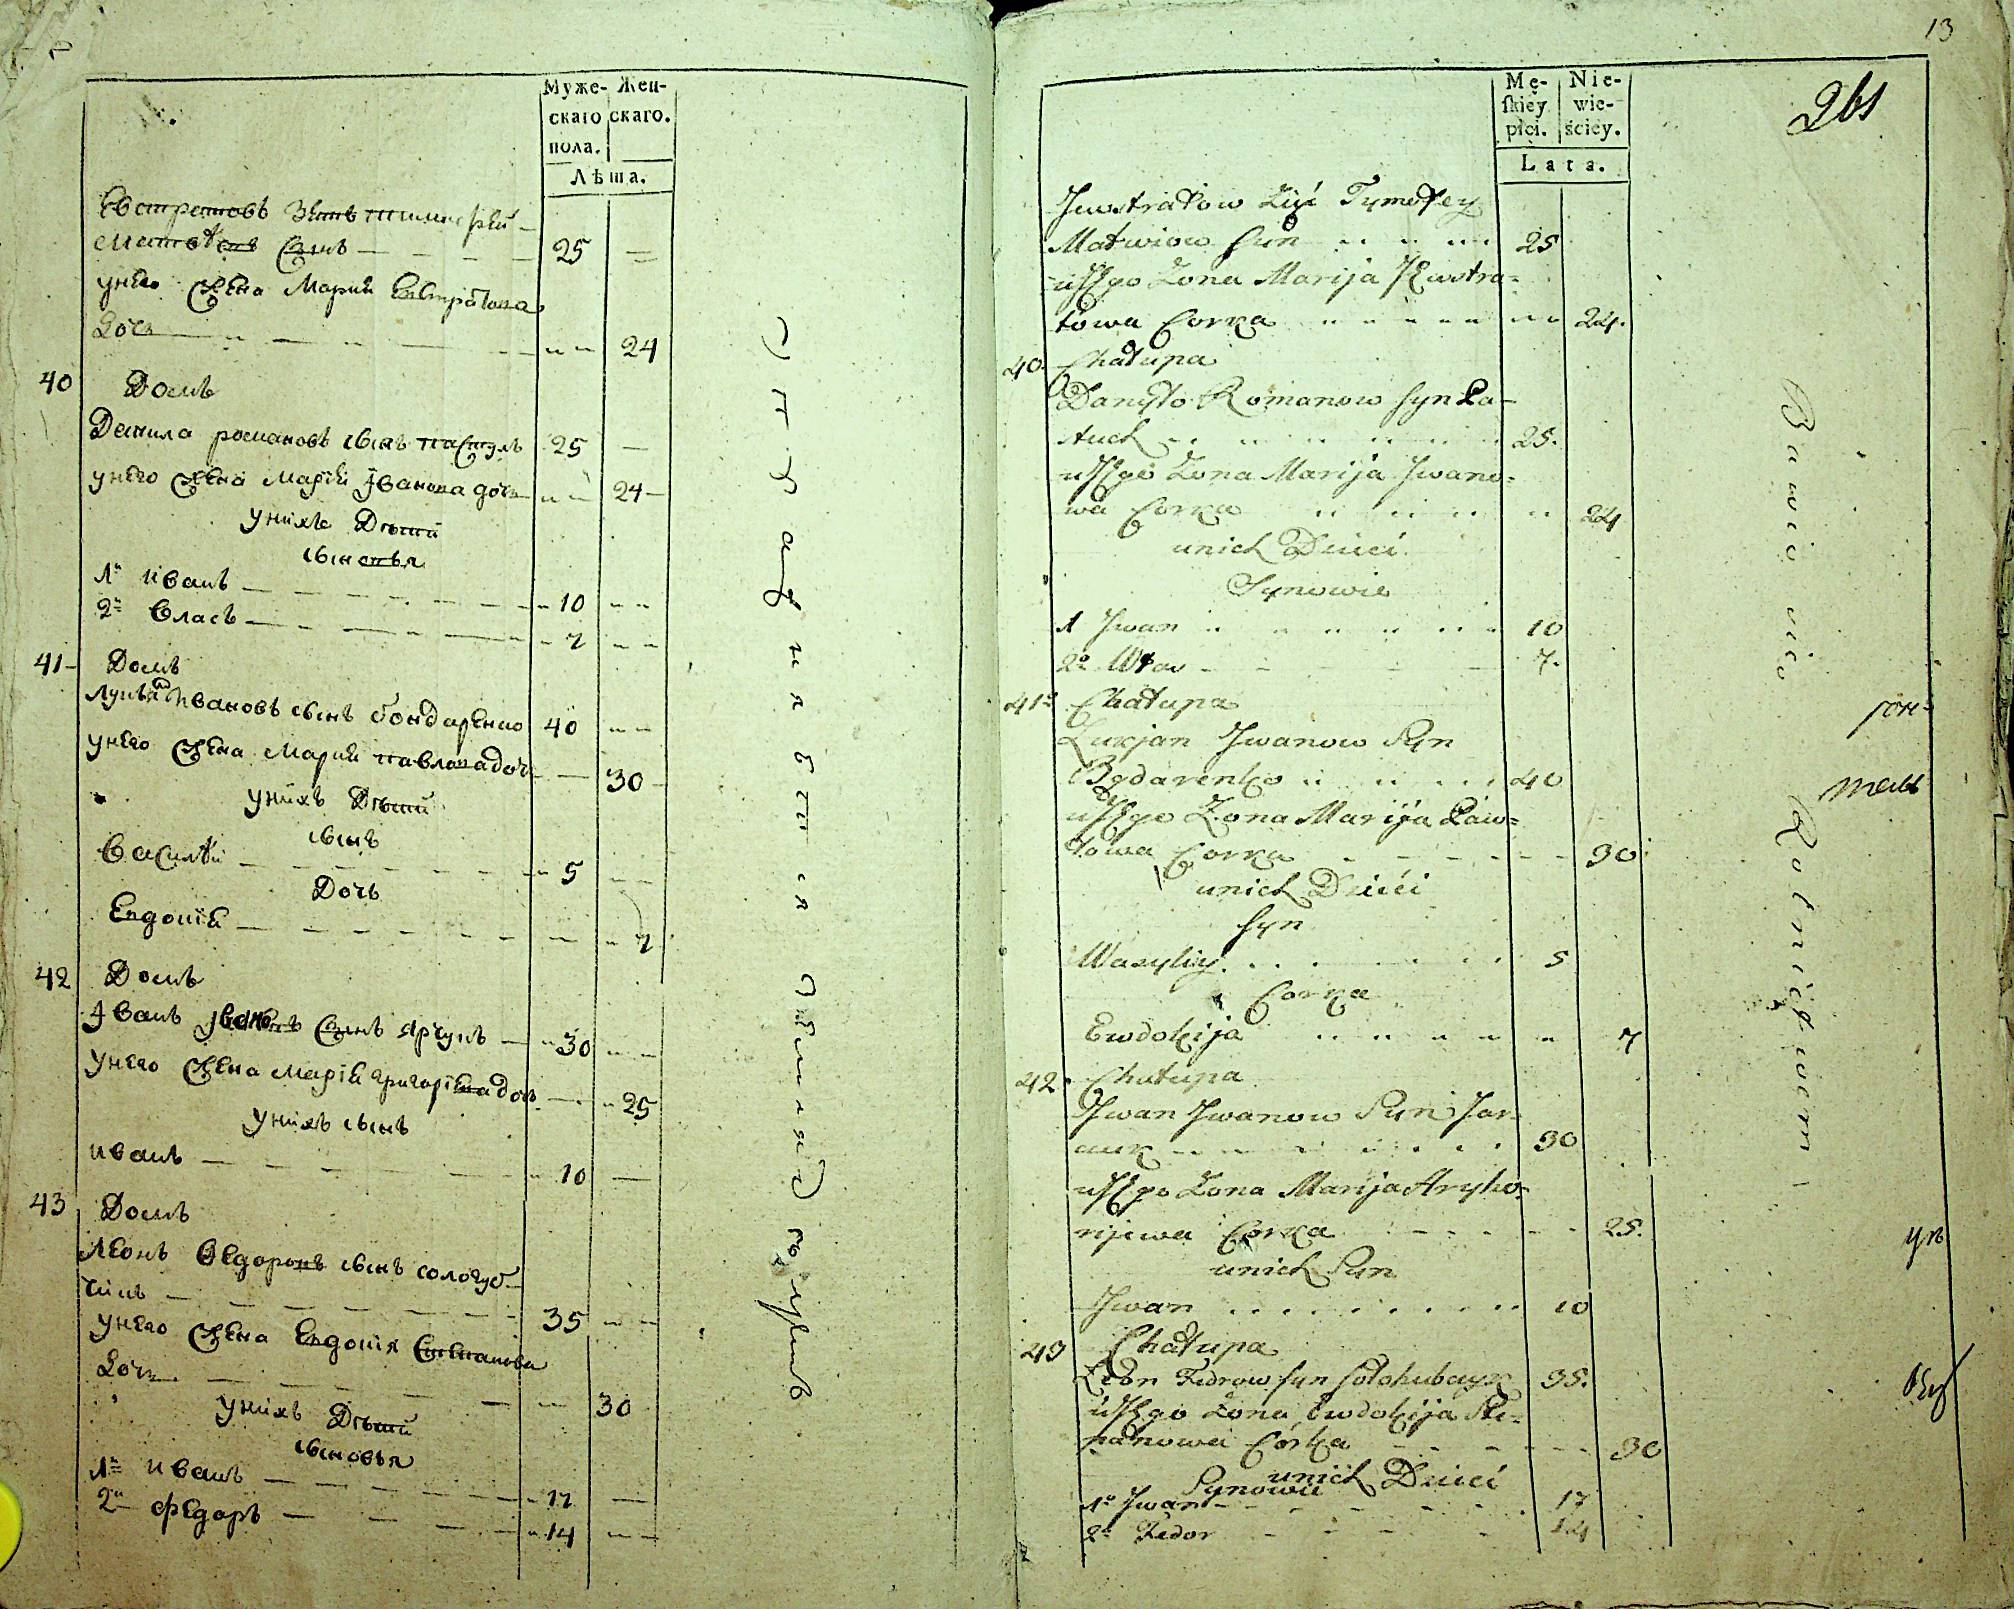 Муже- Жен-
скаго скаго.
пола.
Лѣта.
Евстратовъ Зять тимофѣй
Матвѣевъ Сынъ 25
унего Жена Мария Евстратова
Доч 24
40 Домъ
Данила романовъ сынъ пастухъ 25
унего Жена Марія Іванова доч 24
унихъ Дѣти
сыновья
1й иванъ 10
2й власъ 7
41 Домъ
лукьянъ Ивановъ сынъ бондаренко 40
унего Жена Мария павлова доч 30
унихъ Дѣти
сынъ
Василѣй 5
Дочь
Евдокія 7
42 Домъ
Іванъ Івановъ Сынъ ярчукъ 30
унего Жена Марія григоріева доч 25
унихъ сынъ
иванъ 10
43 Домъ
Леонъ Федоровъ сынъ сологуб-
чикъ 35
унего Жена Евдокія Степанова
Доч 30
унихъ Дѣти
сыновья
1й иванъ 17
2й Федоръ 14
13
Mę- Nie-
skiey wie-
płci. ściey.
Lata.
261
Jewstratow Zięć Tymofey
Matwiow Syn 25
u Jego Żona Marija Jewstra-
towa Corka 24.
40. Chałupa
Danyło Romanow syn Pa-
stuch 25.
u Jego Żona Marija Jwano-
wa Corka 24
unich Dzieci
Synowie
1 Jwan 10
2o Włas 7.
41o Chałupa
Łukjan Jwanow Syn
Bodarenko 40
u Jego Żona Marija Paw-
łowa Corka 30
unich Dzieci
syn
Wasyliy 5
Corka
Ewdokija 7
42. Chałupa
Jwan Jwanow Syn Jar-
czuk 30
u Jego Żona Marija Hryho-
rijewa Corka 25.
unich Syn
Jwan 10
43 Chałupa
Leon Fedrow syn sołohubczyk 35.
u Jego Żona Ewdokija Ste-
panowa Córka 30
unich Dzieci
Synowie
1o Jwan 17
2o Fedor 14
Bawią się Rolnictwem